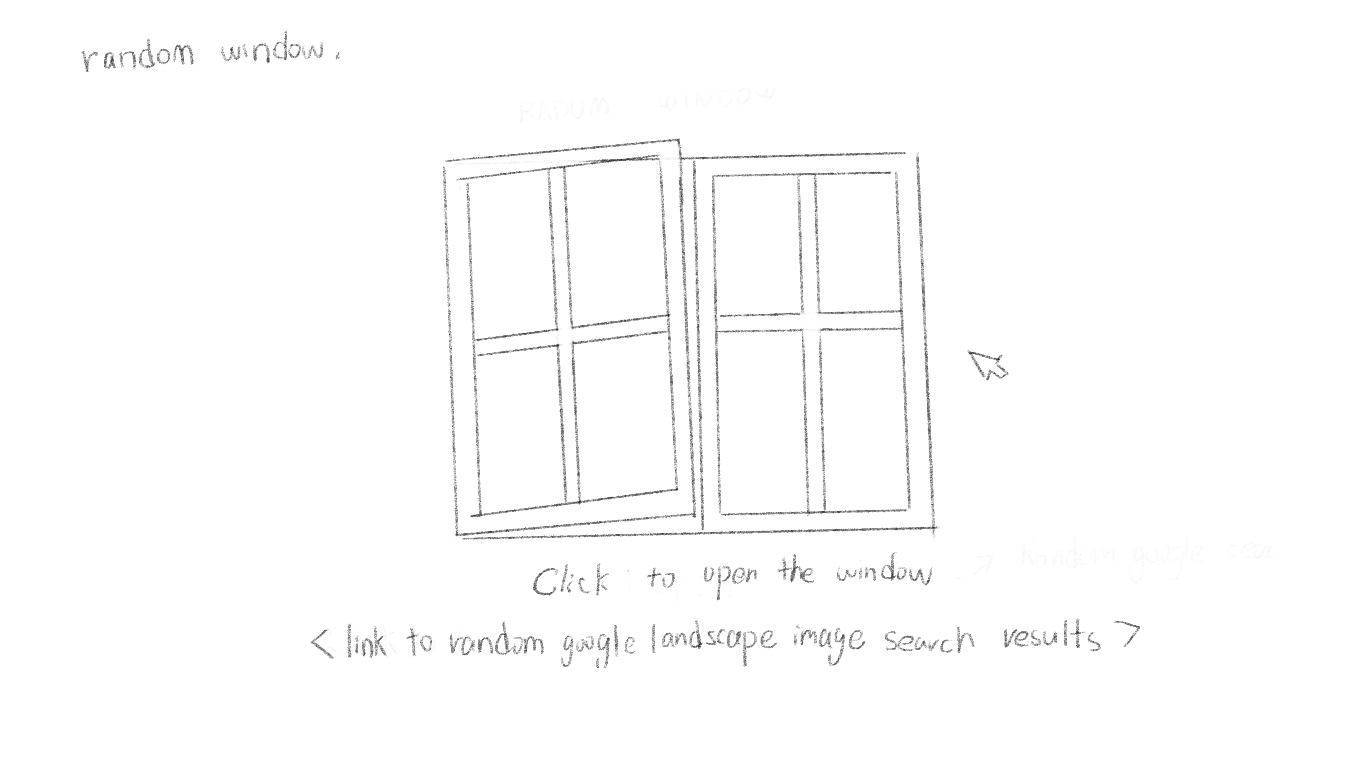 random window.
RANDUM WINDOW
Click to open the window
→ random google sear
< link to random google landscape image search results >